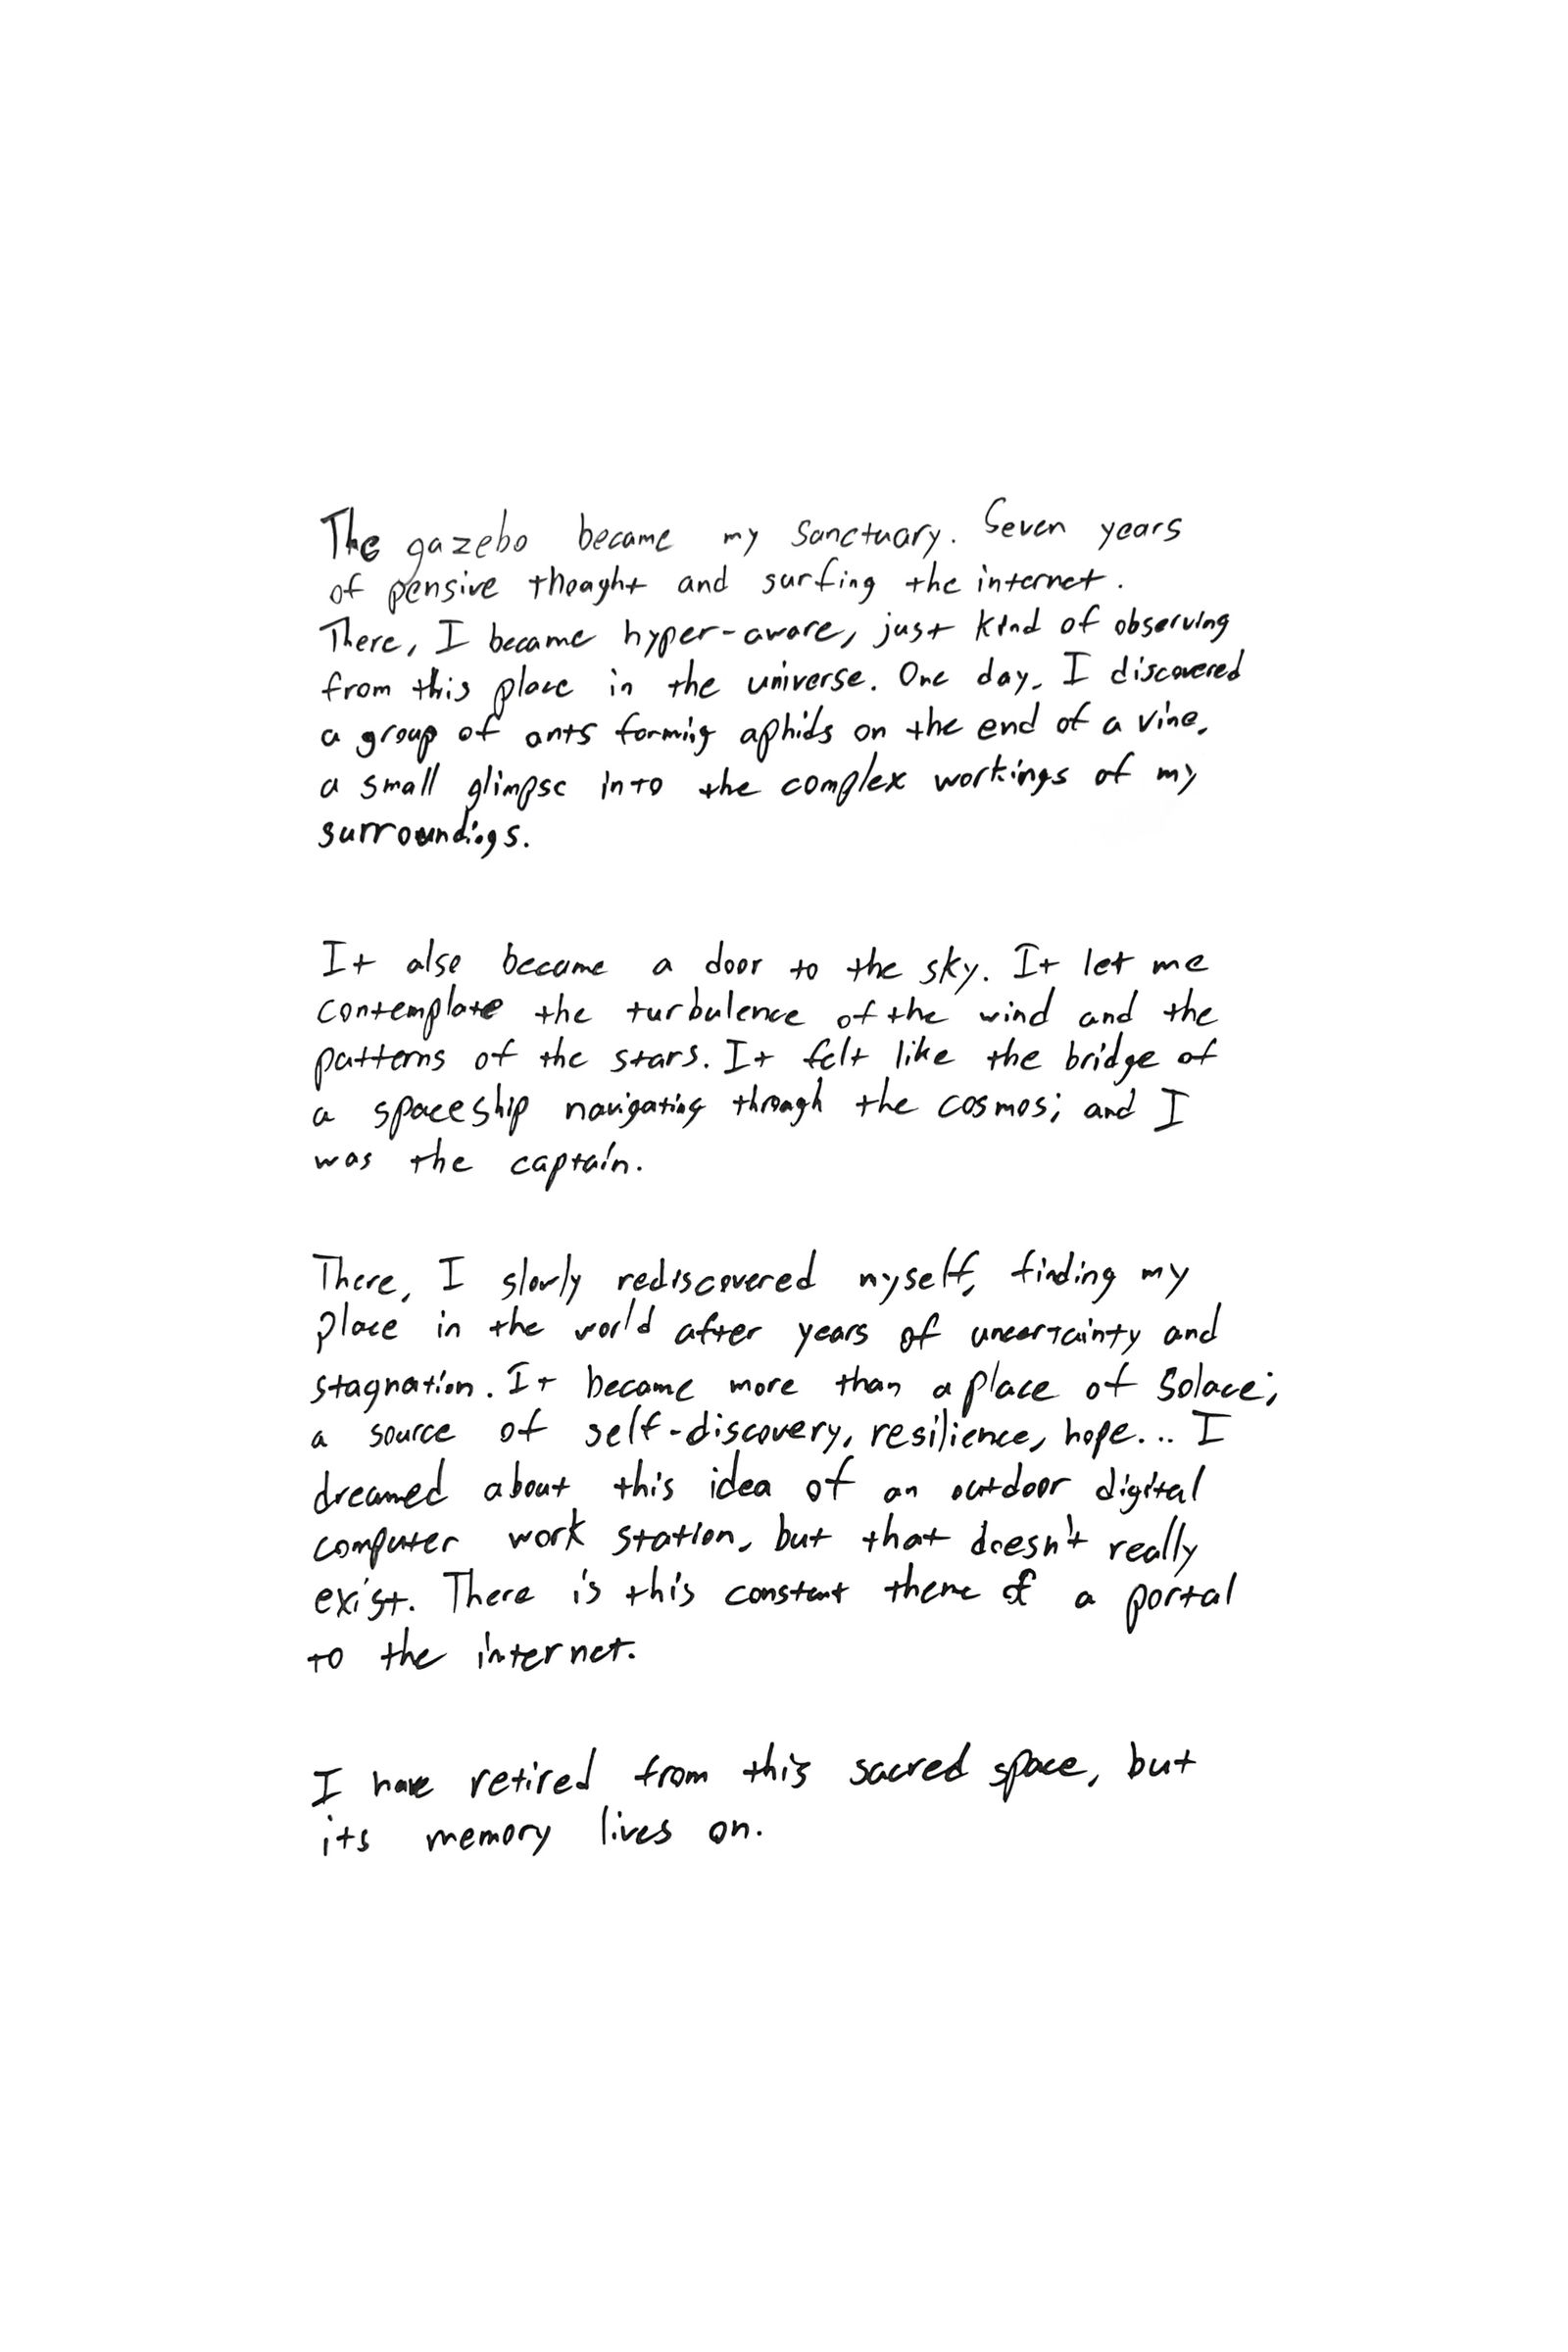 The gazebo became my Sanctuary. Seven years
of pensive thought and surfing the internet.
There, I became hyper-aware, just kind of observing
from this place in the universe. One day, I discovered
a group of ants farming aphids on the end of a vine,
a small glimpse into the complex workings of my
surroundings.
It also became a door to the sky. It let me
contemplate the turbulence of the wind and the
patterns of the stars. It felt like the bridge of
a spaceship navigating through the cosmos; and I
was the captain.
There, I slowly rediscovered myself, finding my
place in the world after years of uncertainty and
stagnation. It became more than a place of Solace;
a source of self-discovery, resilience, hope... I
dreamed about this idea of an outdoor digital
computer work station, but that doesn't really
exist. There is this constant theme of a portal
to the internet.
I have retired from this sacred space, but
its memory lives on.